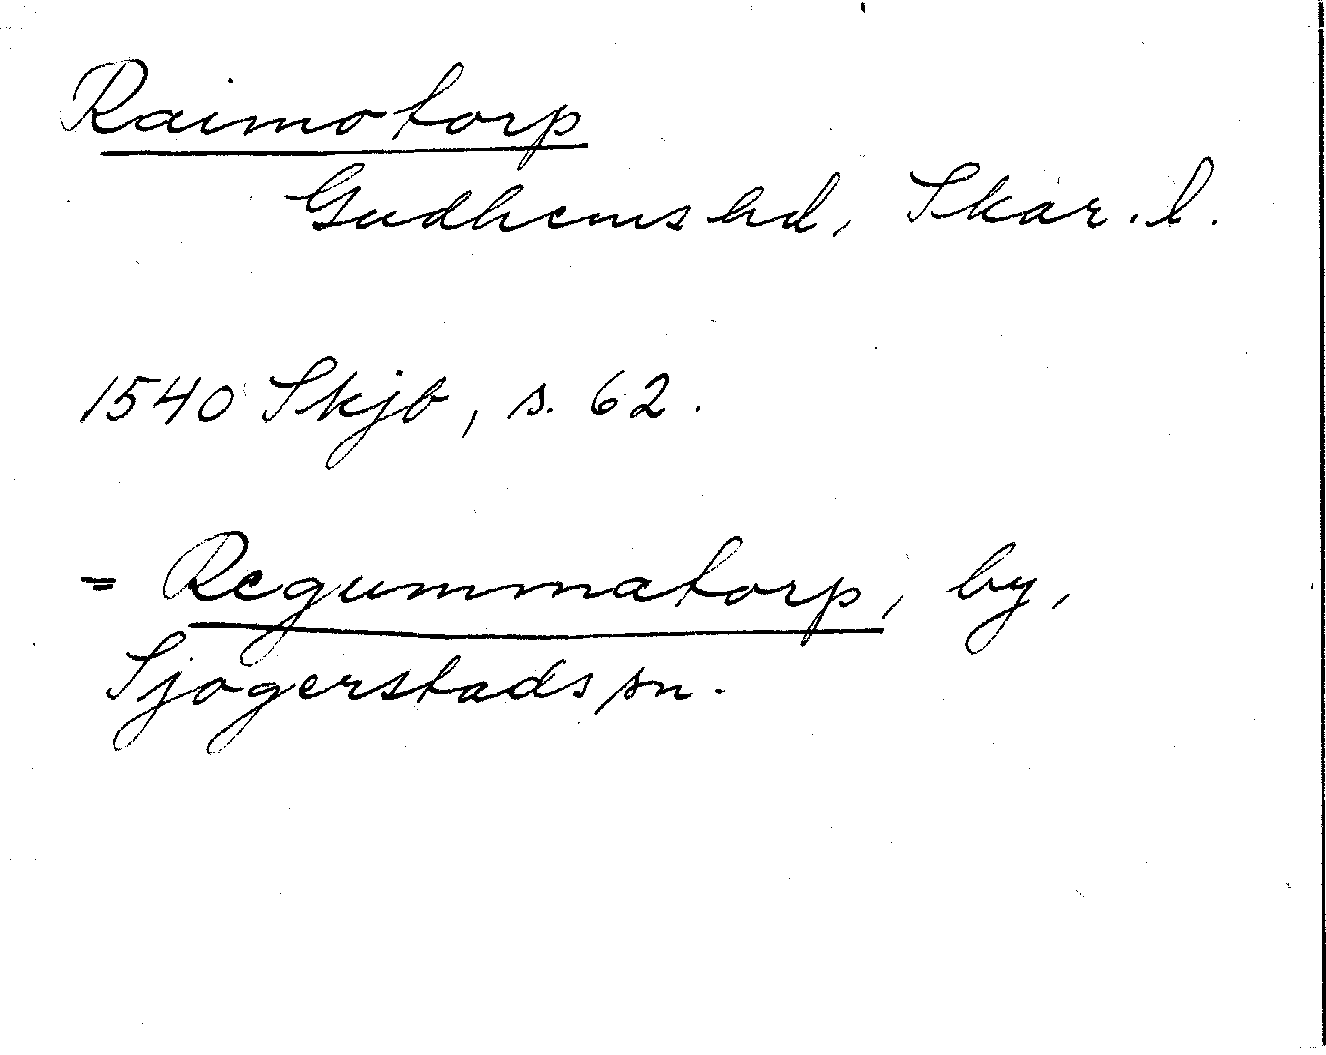 Raimotorp
Gudhems hd, Skar. l.
1540 Skjb, s. 62.
= Regummatorp, by,
Sjogerstads sn.